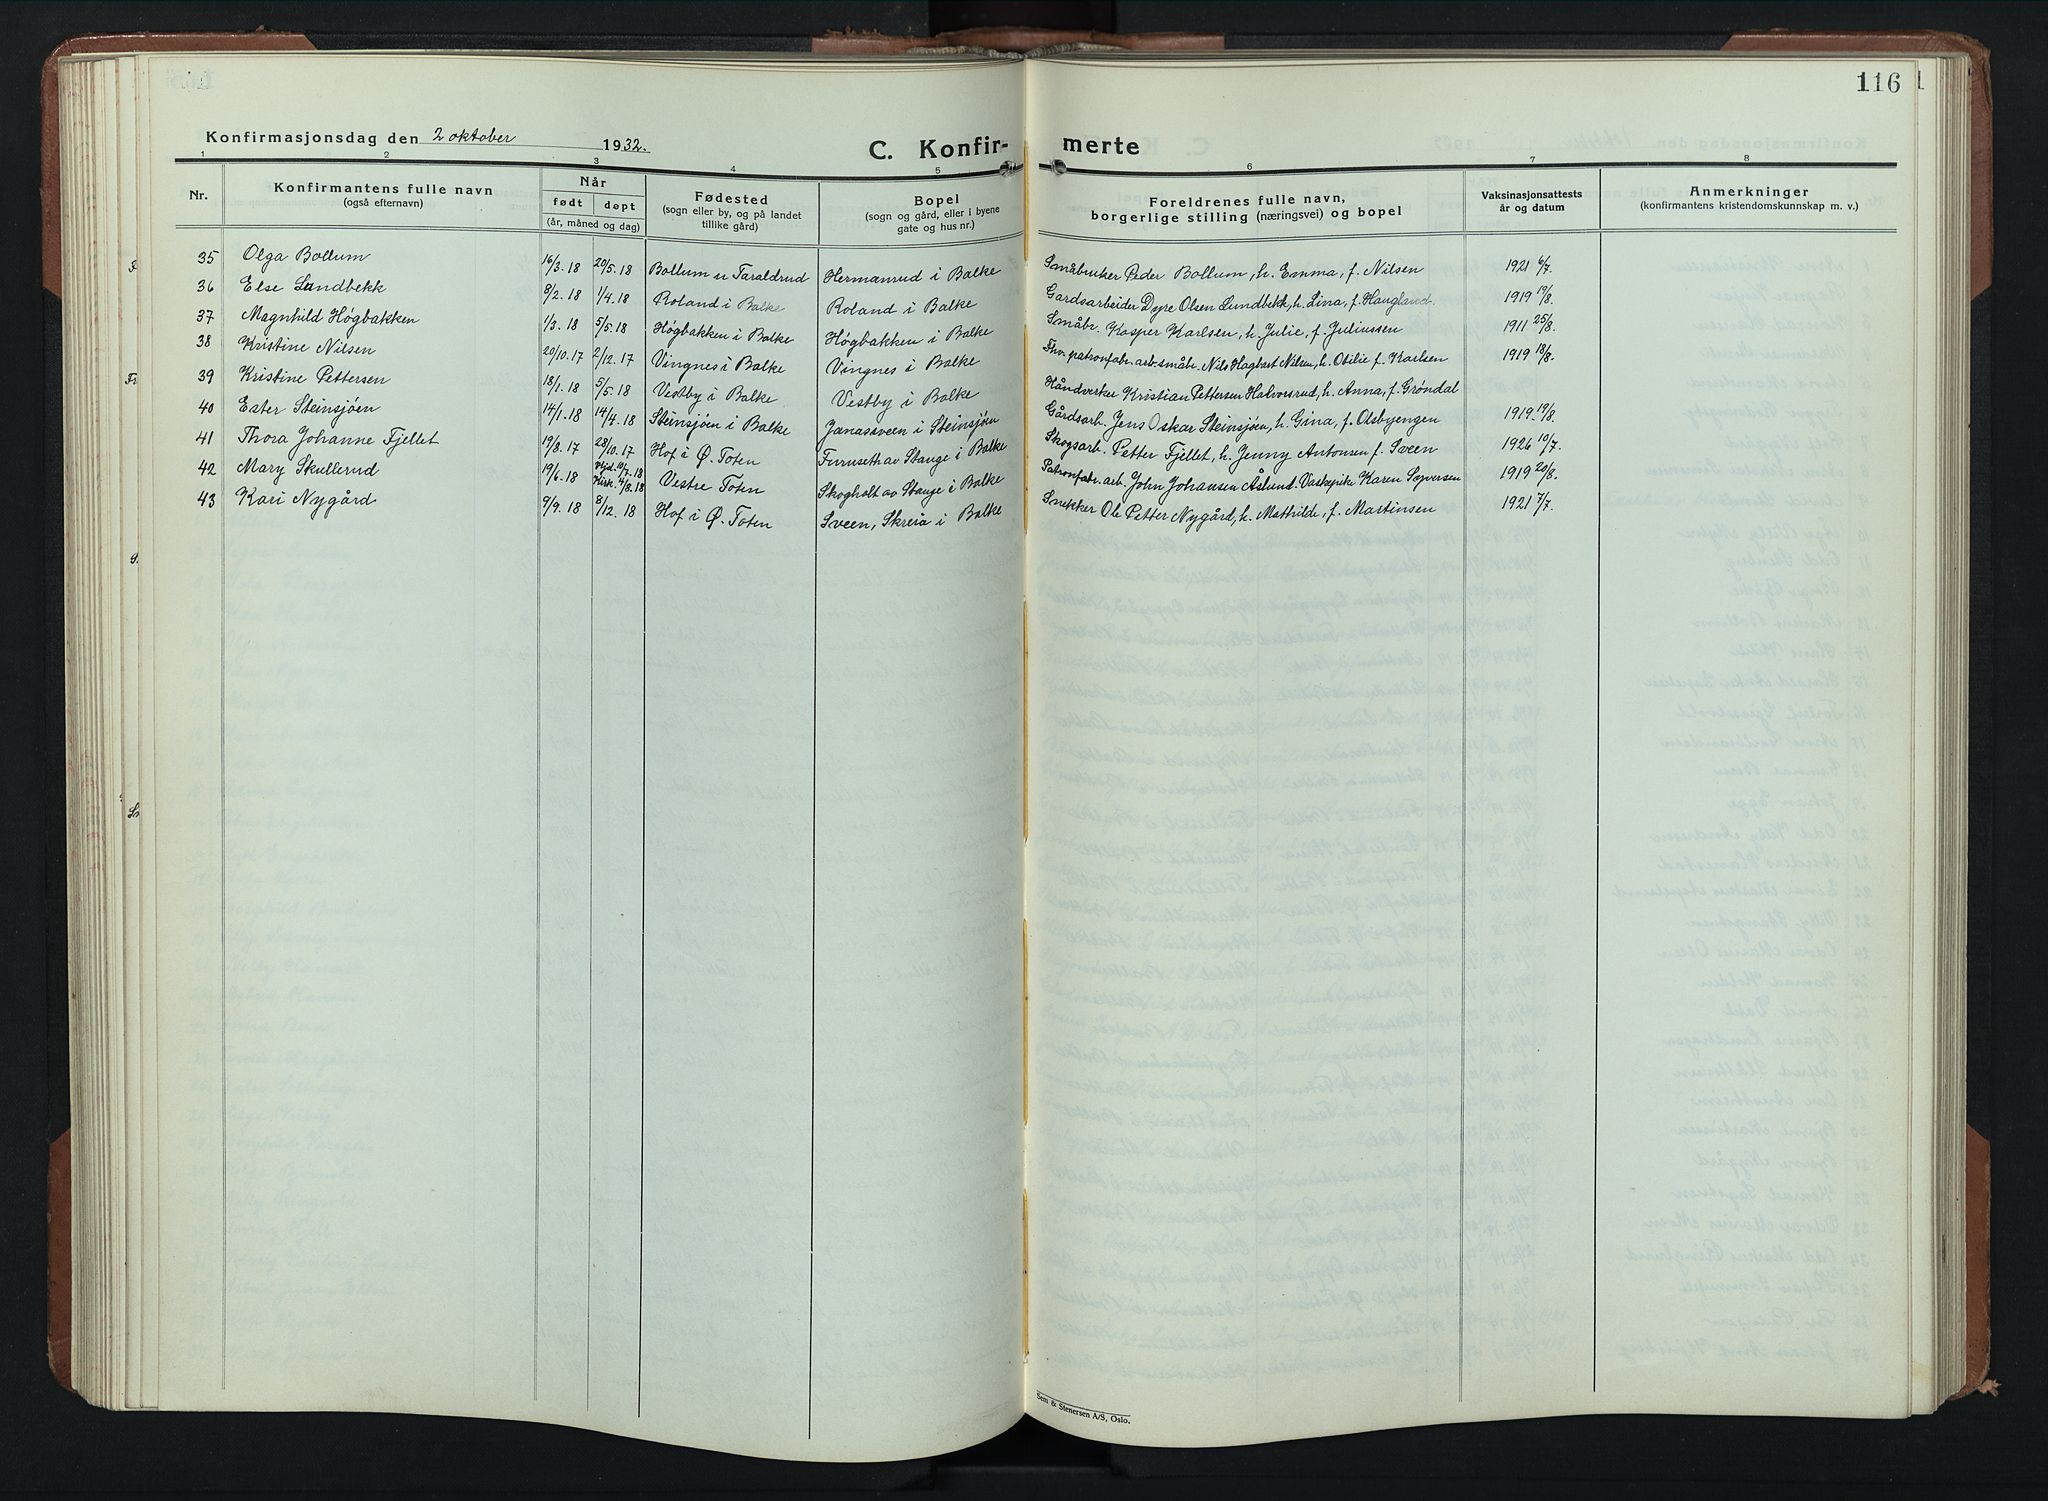 116
Konfirmasjonsdag den 2 oktober 1932.
C. Konfir- merte
1 2 3 4 5 6 7 8
Nr.
Konfirmantens fulle navn
(også efternavn)
Når
født døpt
(år, måned og dag)
Fødested
(sogn eller by, og på landet
tillike gård)
Bopel
(sogn og gård, eller i byene
gate og hus nr.)
Foreldrenes fulle navn,
borgerlige stilling (næringsvei) og bopel
Vaksinasjonsattests
år og datum
Anmerkninger
(konfirmantens kristendomskunnskap m. v.)
35 Olga Bollum 16/3. 18 20/5. 18 Bollum u Taraldrud Hermanrud i Balke Småbruker Peder Bollum, h. Emma, f. Nilsen 1921 6/7.
36 Else Lundbekk 8/2. 18 1/4. 18 Roland i Balke Roland i Balke Gardsarbeider Dyre Olsen Lundbekk, h. Lina, f. Haugland. 1919 19/8.
37 Magnhild Høgbakken 1/3. 18 5/5. 18 Høgbakken i Balke Høgbakken i Balke Småbr. Kasper Karlsen, h. Julie, f. Juliussen 1911 25/8.
38 Kristine Nilsen 20/10. 17 2/12. 17 Vingnes i Balke Vingnes i Balke Fhv. patronfabr. arb. småbr. Nils Hagbart Nilsen, h. Otilie f. Karlsen 1919 18/8.
39 Kristine Pettersen 18/1. 18 5/5. 18 Vestby i Balke Vestby i Balke Håndverker Kristian Pettersen Halvorsrud, h. Anna, f. Grøndal
40 Ester Steinsjøen 14/1. 18 14/4. 18 Steinsjøen i Balke Jønassveen i Steinsjøen Gårdsarb. Jens Oskar Steinsjøen, h. Gina, f. Olsbyengen 1919. 19/8.
41 Thora Johanne Fjellet 19/8. 17 28/10. 17 Hof i Ø. Toten Furuseth av Stange i Balke Skogsarb. Petter Fjellet, h. Jenny Antonsen f. Sveen 1926 10/7.
42 Mary Skullerud 19/6. 18 Hjd. 10/7. 18 Kirk. 4/8. 18 Vestre Toten Skogholt av Stange i Balke Patronfabr. arb. John Johansen Åslund. Vaskepike Karen Syversen 1919 20/8.
43 Kari Nygård 9/9. 18 8/12. 18 Hof i Ø. Toten Sveen, Skreia i Balke Snekker Ole Petter Nygård, h. Mathilde, f. Martinsen 1921 7/7.
Sem & Stenersen A/S, Oslo.